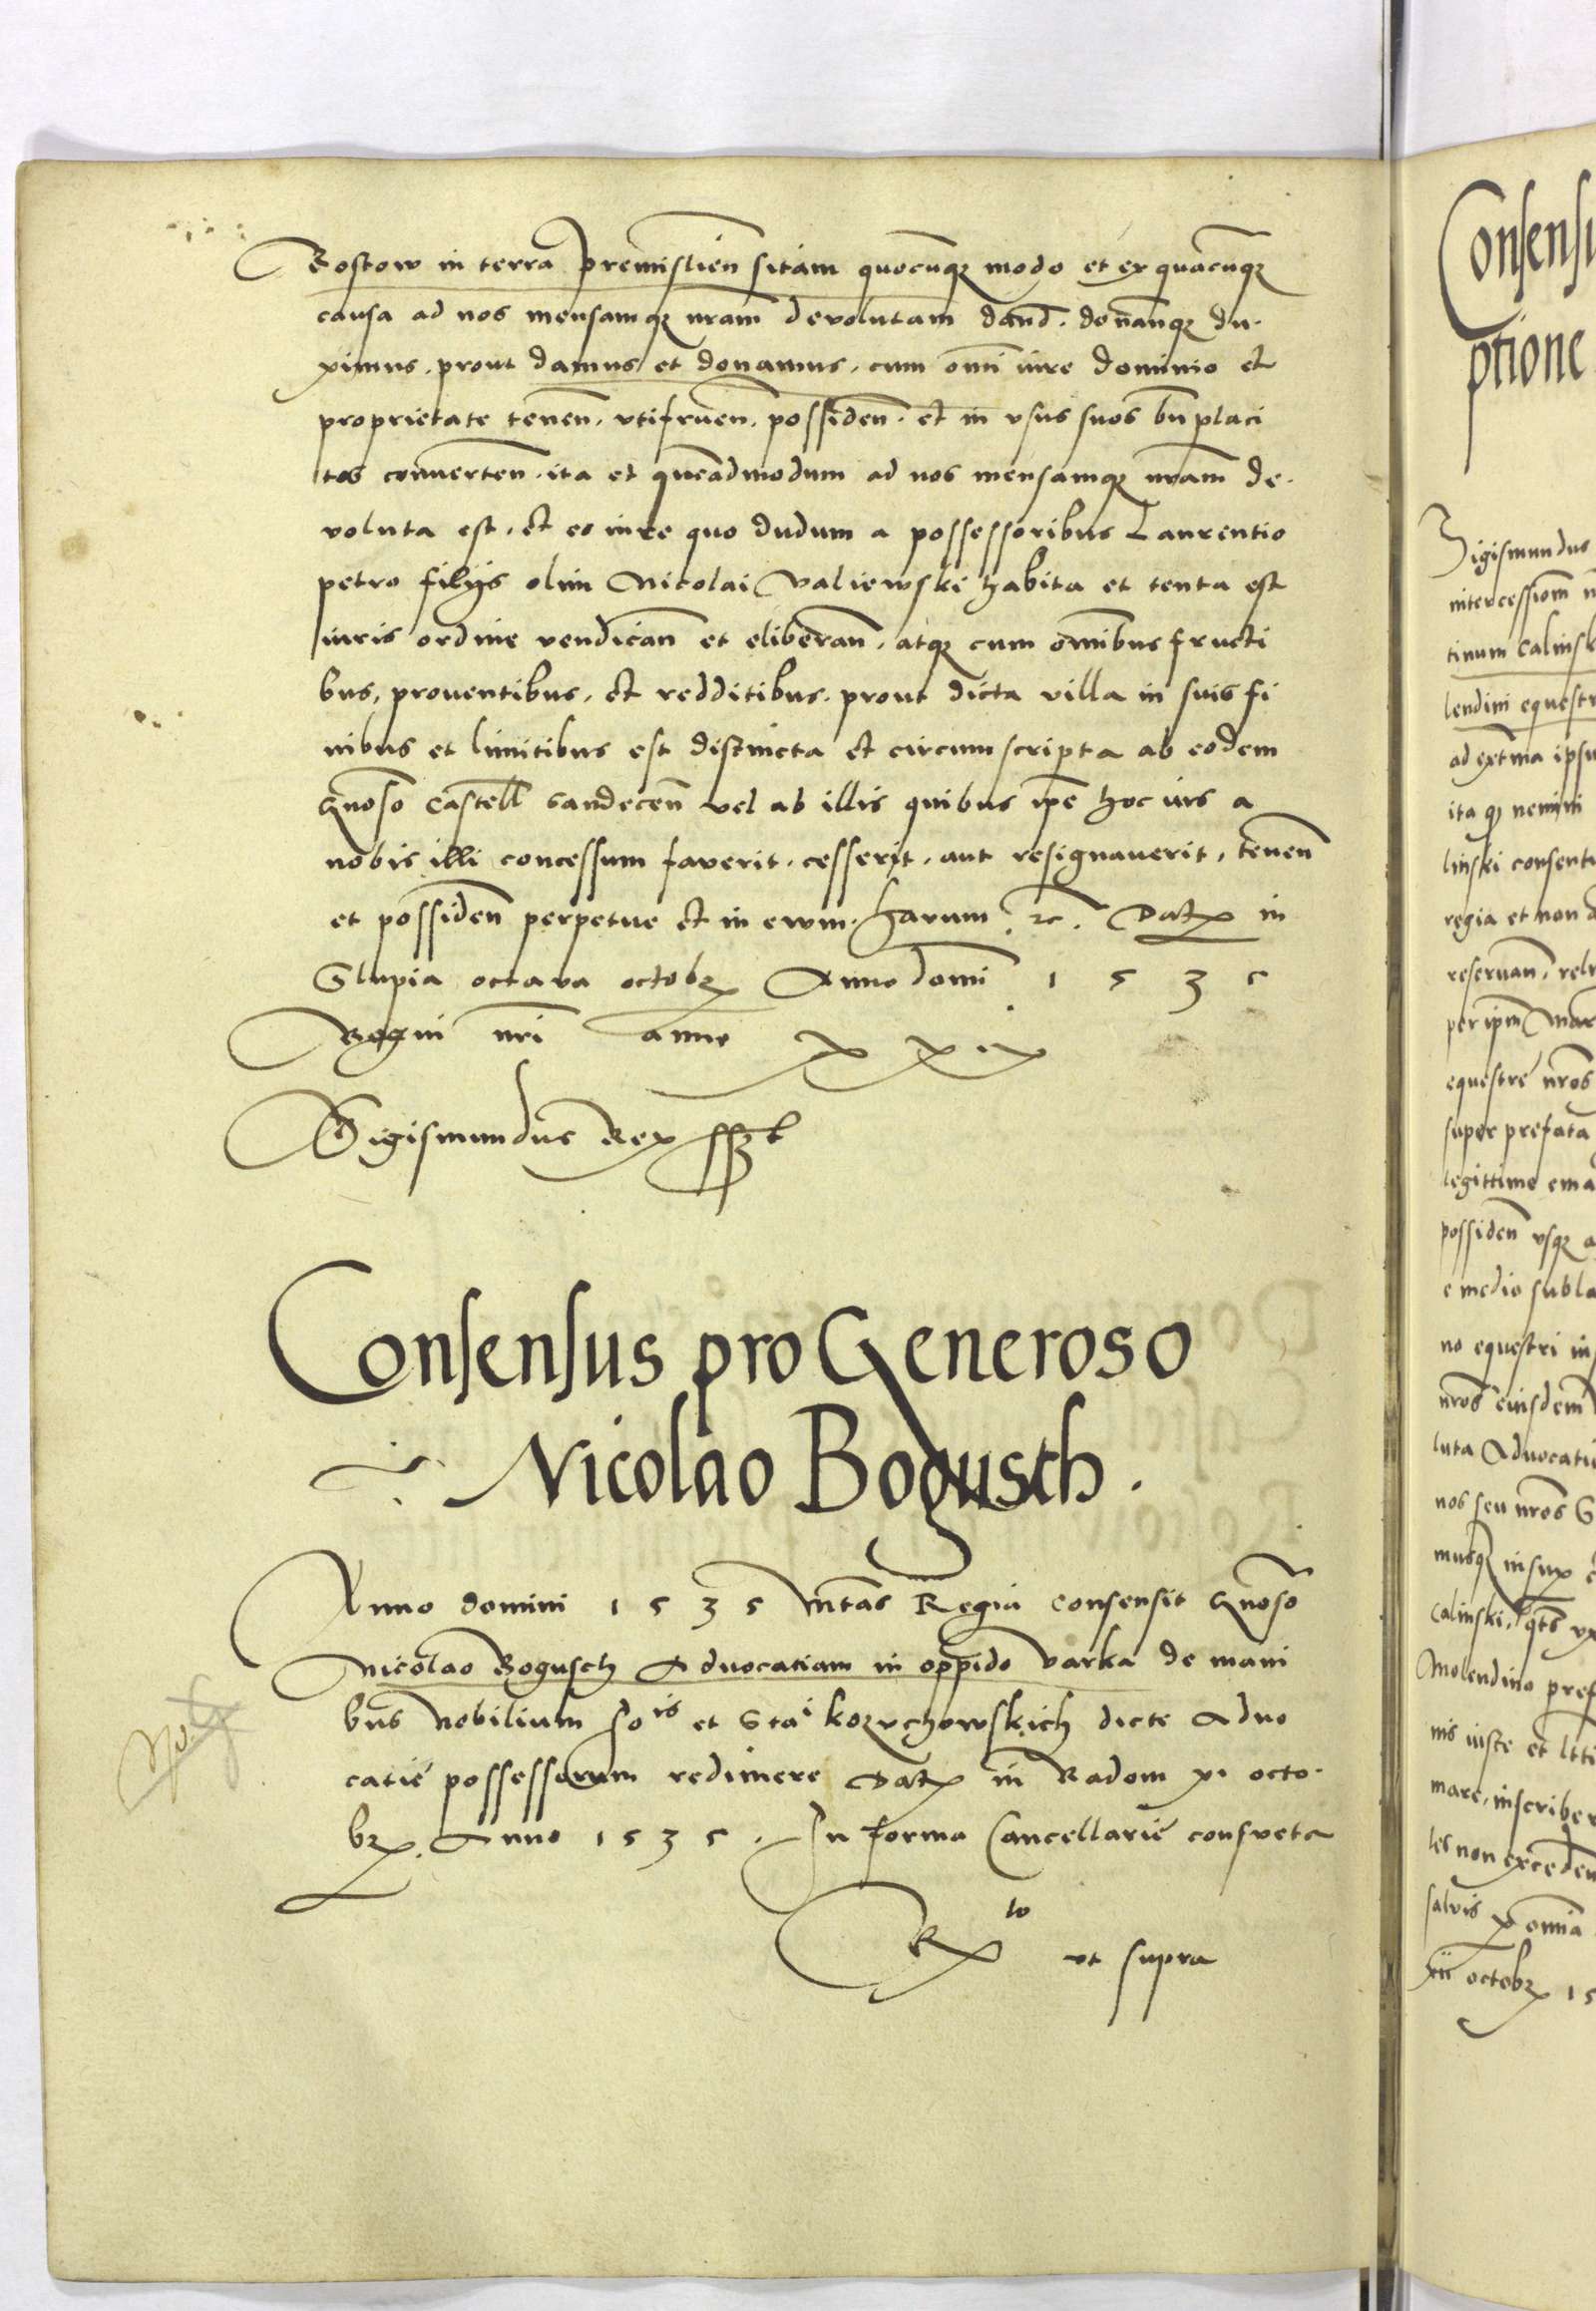 Rostow in terra premislien sitam quocunqz modo et ex quacunqz
causa ad nos mensamqz nram devolutam dand. donanqz du-
ximus. prout damus et donamus. cum omi iure dominio et
proprietate tenen. vtifruen. possiden. et in vsus suos bn placi
tos converten. ita et queadmodum ad nos mensamqz nram de-
voluta est. et eo iure quo dudum a possessoribus Laurentio
petro filijs olim Nicolai Valiewski habita et tenta est
iuris ordine vendican et eliberan. atqz cum omnibus fructi
bus, proventibus. et redditibus. prout dicta villa in suis fi
nibus et limitibus est distincta et circumscripta ab eodem
gnoso Castell Sandecen vel ab illis quibus ipe hoc ius a
nobis illi concessum faverit. cesserit. aut resignaverit, tenen
et possiden perpetue et in ewm. harum. &c. Datx in
Slupia octava octobrx Anno domi 1535
Regni nri anno xxix
Sigismundus Rex sszt
Consensus pro Generoso
Nicolao Bogusch.
Anno domini 1535 Mtas Regia consensit gnoso
Nicolao Bogusch Advocatiam in oppido varka de mani
bus Nobilium Jois et Stai kozuchowskich dicte Advo
catie possessorum redimere Datx in Radom xi octo-
brx. Anno 1535. In forma Cancellarie consveta
Rxto vt supra
Consensu
ptione
Sigismundus
intercessiom n
tinum Calinsk
lendini equestr
ad extma ipsu
ita qz nemini
linski consentu
regia et non a
reservan. relu
per ipm Mar
equestre nros
super prefata
legittime ema
possiden vsqz a
e medio subla
no equestri in
nros eiusdem
luta Advocatia
nos seu nros S
musqz insupx
Calinski. qts vx
Molendino pref
nis iuste et ltti
mare, inscriber
les non exceden
salvis p omia
xii octobrx 15